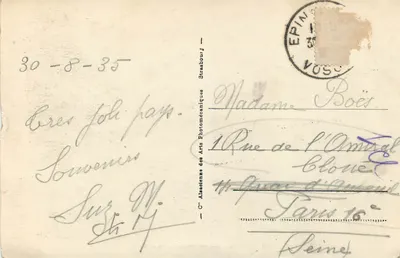 30-8-35
Très joli pays.
Souvenirs
Suz M
Cie Alsacienne des Arts Photomécaniques Strasbourg
EPIN
VOSG
Madame Boës
1 Rue de l'Amiral
Cloué
11 Quai d'
Paris 16e
(Seine)